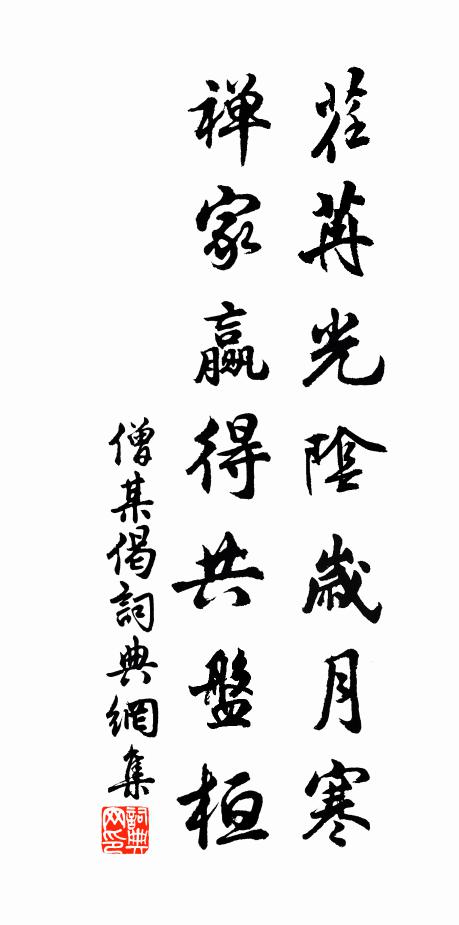 荏苒光陰歲月寒
禪家贏得共盤桓
僧某偈詞典網集
詞典網印